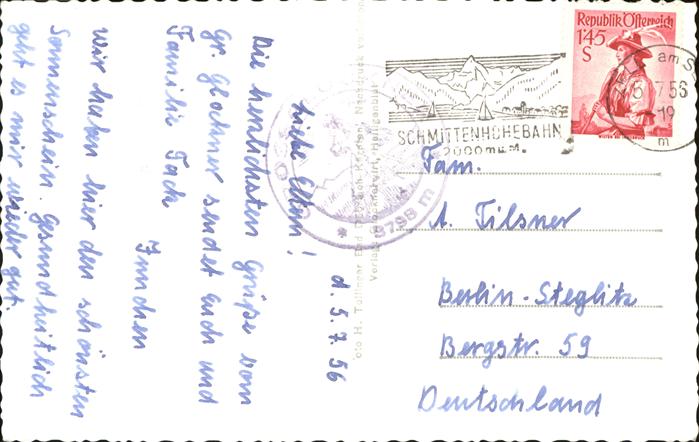 d. 5.7.56
Liebe Eltern!
Die herzlichsten Grüße vom
Gr. Glockner sendet euch und
Familie Tack
Inchen
Wir haben hier den schönsten
Sonnenschein. Gesundheitlich
geht es mir wieder gut.
Foto H. Tollinger
Verlag Glocknerwirt, Heiligenblut
GROSSGLOCKNER
* 3798 m
SCHMITTENHÖHEBAHN
2000 m ü.M.
Republik Österreich
1'45
S
am S
5. 7 56
19
m
Fam.
A. Tilsner
Berlin-Steglitz
Bergstr. 59
Deutschland